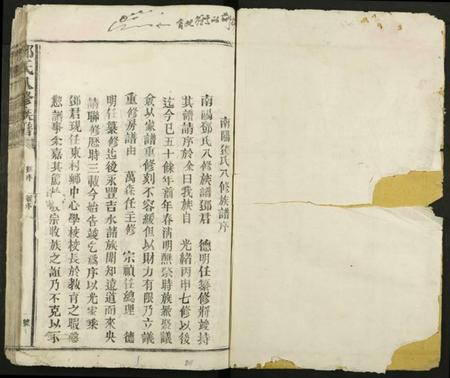 南陽鄧氏八修族譜序
南陽鄧氏八修族譜鄧君　德明任纂修將竣持
其譜請序於余曰我族自　光緒丙申七修以後
迄今已五十餘年前年春清明醮祭時族眾聚議
僉以家譜重修刻不容緩但以財力有限乃立議
重修房譜由　萬森任主修　宗禎任總理　德
明任纂修迄後永豐吉水諸族聞知遠道而來央
請聯修歷時三載今始告竣乞為序以光家乘
鄧君現任東村鄉中心學校校長於教育之暇
譜事余嘉其宗收族之誼乃不克以
鄧氏八修族譜